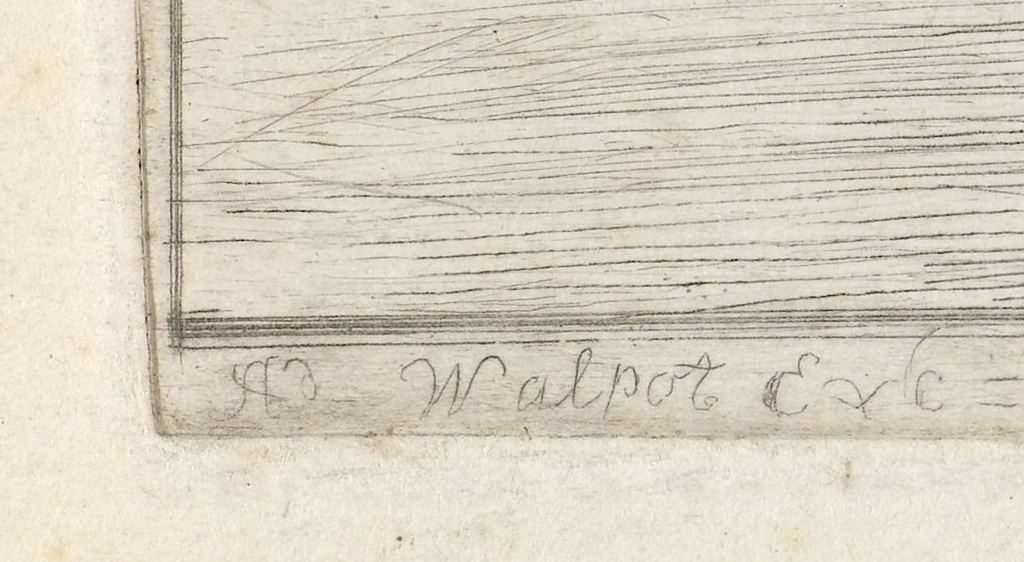 AD Walpot Exc =